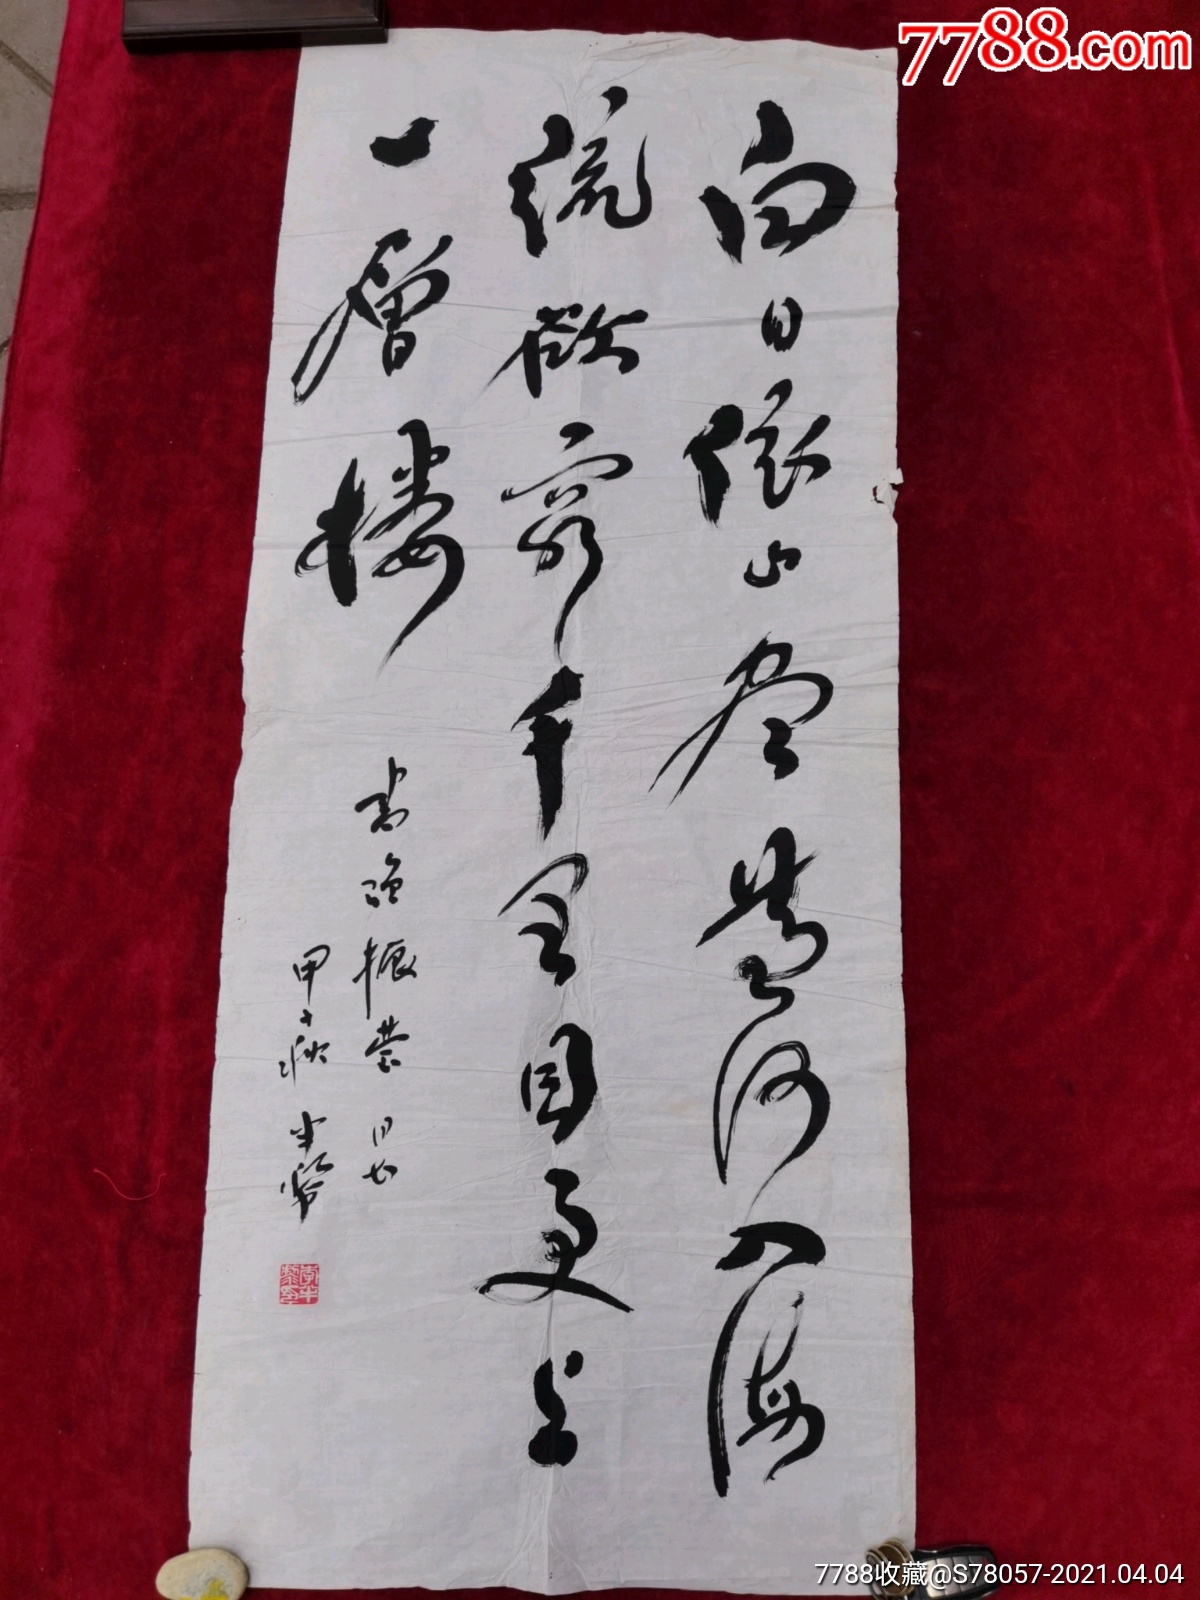 7788.com
白日依山尽黄河入海
流欲穷千里目更上
一層楼
甲子秋 半黎
李半黎印
7788收藏@S78057-2021.04.04